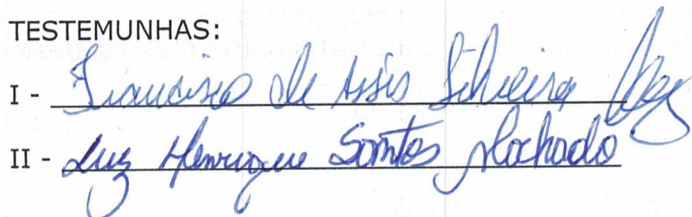 TESTEMUNHAS:
I - Francisco de Assis Silveira
II - Luiz Henrique Santos Machado